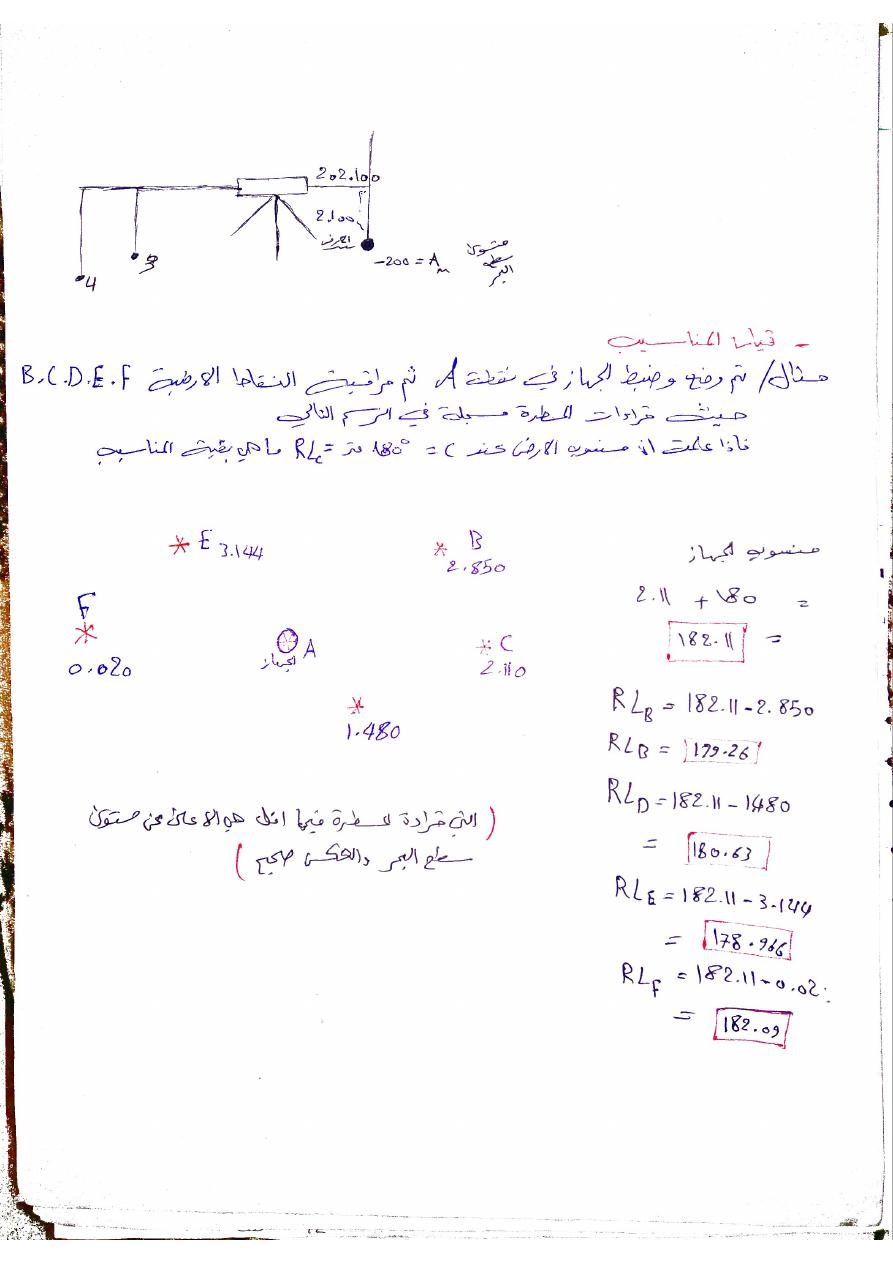 202.100
2.100
الارض
-200 = Am
مستوى
سطح
البحر
3
4
- قياس المناسيب
مثال/ تم وضع وضبط الجهاز في نقطة A ثم مراقبة النقاط الارضية B.C.D.E.F
حيث قراءات المسطرة مسجلة في الرسم التالي
فاذا علمت ان منسوب الارض عند C = RLc = 180° متر ما هي بقية المناسيب
E 3.144
B
2.850
F
0.020
A
الجهاز
C
2.110
1.480
منسوب الجهاز
= 180 + 2.11
= 182.11
RLB = 182.11 - 2.850
RLB = 179.26
RLD = 182.11 - 1480
= 180.63
RLE = 182.11 - 3.144
= 178.966
RLF = 182.11 - 0.02
= 182.09
(التي قراءة المسطرة فيها اقل هو الاعلى عن مستوى
سطح البحر والعكس صحيح)